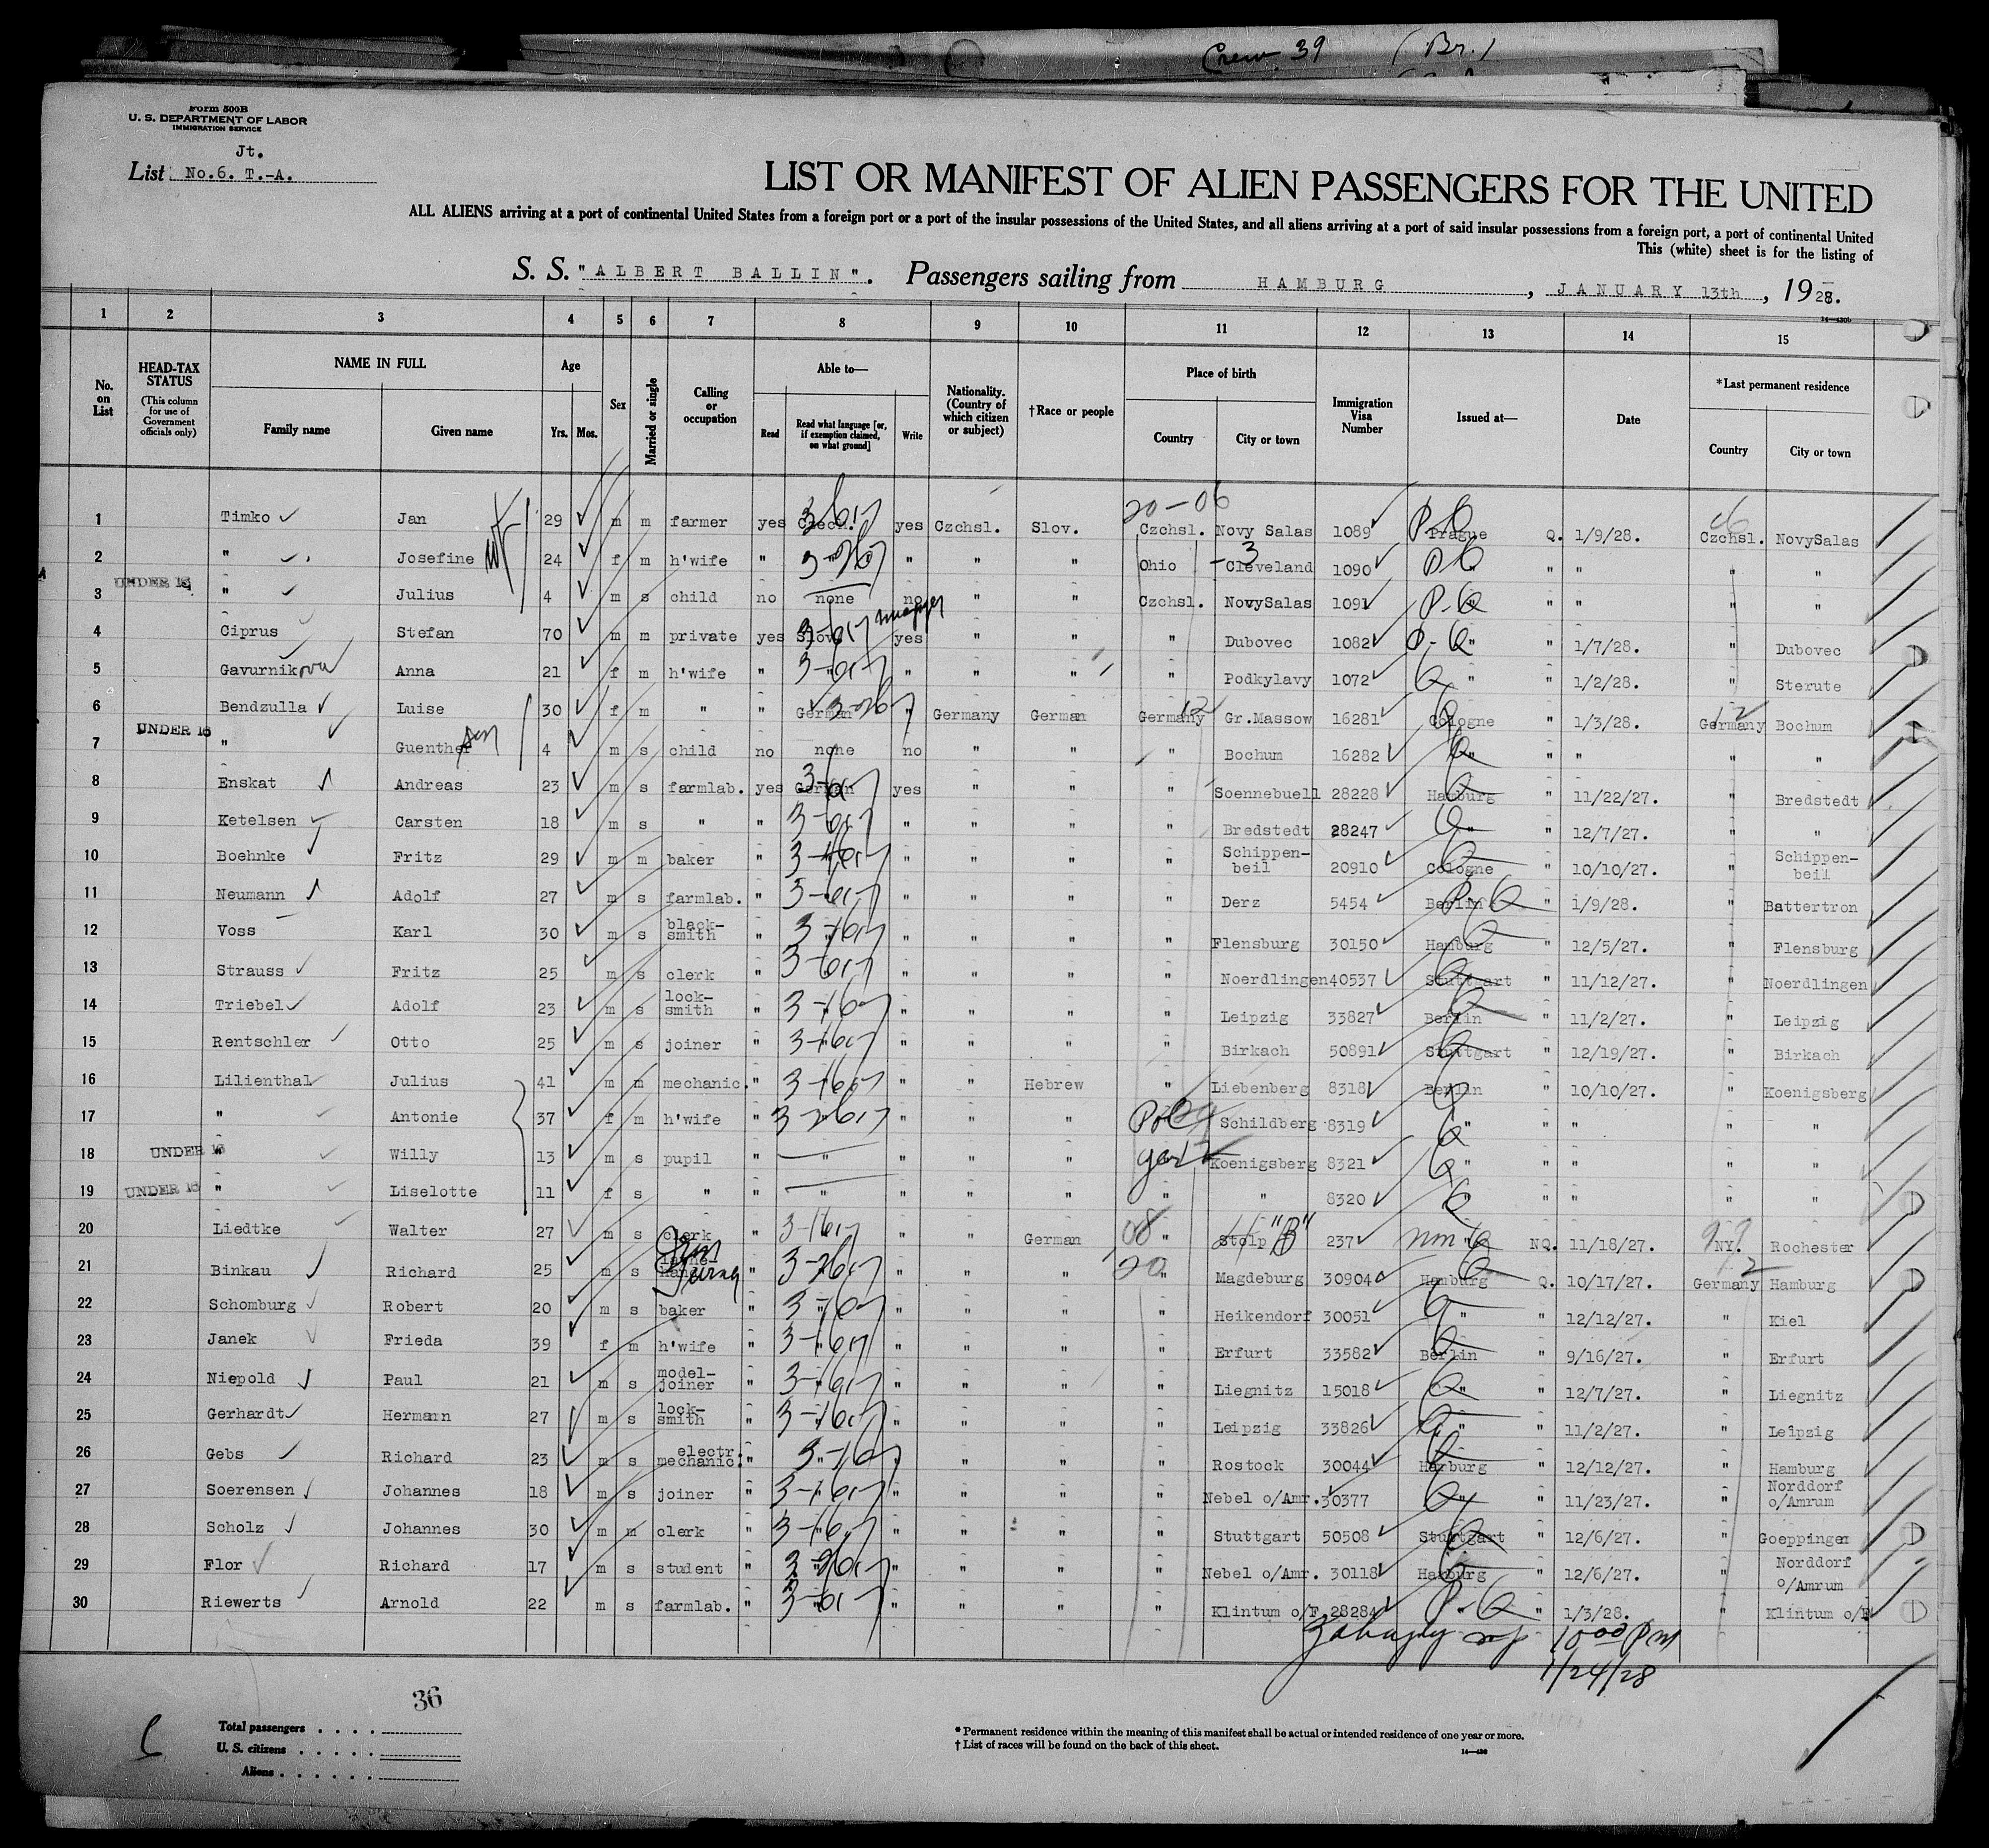 Crew 39 (Br.)
Form 500B
U. S. DEPARTMENT OF LABOR
IMMIGRATION SERVICE
Jt.
List No.6. T.-A.
LIST OR MANIFEST OF ALIEN PASSENGERS FOR THE UNITED
ALL ALIENS arriving at a port of continental United States from a foreign port or a port of the insular possessions of the United States, and all aliens arriving at a port of said insular possessions from a foreign port, a port of continental United
This (white) sheet is for the listing of
S. S. "ALBERT BALLIN". Passengers sailing from HAMBURG, JANUARY 13th, 1928.
14—430b
1 2 3 4 5 6 7 8 9 10 11 12 13 14 15
No. on List
HEAD-TAX STATUS (This column for use of Government officials only)
NAME IN FULL Family name Given name
Age Yrs. Mos.
Sex
Married or single
Calling or occupation
Able to— Read Read what language [or, if exemption claimed, on what ground] Write
Nationality. (Country of which citizen or subject)
†Race or people
Place of birth Country City or town
Immigration Visa Number
Issued at—
Date
*Last permanent residence Country City or town
20-06
1 Timko Jan 29 m m farmer yes Czech. yes Czchsl. Slov. Czchsl. Novy Salas 1089 Prague Q. 1/9/28. Czchsl. NovySalas
2 " Josefine 24 f m h'wife " " " " " Ohio -3 Cleveland 1090 " " " " "
3 UNDER 16 " Julius 4 m s child no none no " " Czchsl. NovySalas 1091 " " " " "
4 Ciprus Stefan 70 m m private yes Slov. yes " " " Dubovec 1082 " " 1/7/28. " Dubovec
5 Gavurnikova Anna 21 f m h'wife " " " " " " Podkylavy 1072 " " 1/2/28. " Sterute
6 Bendzulla Luise 30 f m " " German " Germany German Germany Gr.Massow 16281 Cologne " 1/3/28. Germany Bochum
7 UNDER 16 " Guenther son 4 m s child no none no " " " Bochum 16282 " " " " "
8 Enskat Andreas 23 m s farmlab. yes German yes " " " Soennebuell 28228 Hamburg " 11/22/27. " Bredstedt
9 Ketelsen Carsten 18 m s " " " " " " " Bredstedt 28247 " " 12/7/27. " "
10 Boehnke Fritz 29 m m baker " " " " " " Schippenbeil 20910 Cologne " 10/10/27. " Schippenbeil
11 Neumann Adolf 27 m s farmlab. " " " " " " Derz 5454 Berlin " i/9/28. " Battertron
12 Voss Karl 30 m s black-smith " " " " " " Flensburg 30150 Hamburg " 12/5/27. " Flensburg
13 Strauss Fritz 25 m s clerk " " " " " " Noerdlingen 40537 Stuttgart " 11/12/27. " Noerdlingen
14 Triebel Adolf 23 m s lock-smith " " " " " " Leipzig 33827 Berlin " 11/2/27. " Leipzig
15 Rentschler Otto 25 m s joiner " " " " " " Birkach 50891 Stuttgart " 12/19/27. " Birkach
16 Lilienthal Julius 41 m m mechanic. " " " " Hebrew " Liebenberg 8318 Berlin " 10/10/27. " Koenigsberg
17 " Antonie 37 f m h'wife " " " " " Pol Schildberg 8319 " " " " "
18 UNDER 16 " Willy 13 m s pupil " " " " " Ger Koenigsberg 8321 " " " " "
19 UNDER 16 " Liselotte 11 f s " " " " " " " " 8320 " " " " "
20 Liedtke Walter 27 m s clerk " " " " German " Stolp "B" 237 " NQ. 11/18/27. NY. Rochester
21 Binkau Richard 25 m s " " " " " " Magdeburg 30904 Hamburg Q. 10/17/27. Germany Hamburg
22 Schomburg Robert 20 m s baker " " " " " " Heikendorf 30051 " " 12/12/27. " Kiel
23 Janek Frieda 39 f m h'wife " " " " " " Erfurt 33582 Berlin " 9/16/27. " Erfurt
24 Niepold Paul 21 m s model-joiner " " " " " " Liegnitz 15018 " " 12/7/27. " Liegnitz
25 Gerhardt Hermann 27 m s lock-smith " " " " " " Leipzig 33826 " " 11/2/27. " Leipzig
26 Gebs Richard 23 m s electr. mechanic. " " " " " " Rostock 30044 Hamburg " 12/12/27. " Hamburg
27 Soerensen Johannes 18 m s joiner " " " " " " Nebel o/Amr. 30377 " " 11/23/27. " Norddorf o/Amrum
28 Scholz Johannes 30 m m clerk " " " " " " Stuttgart 50508 Stuttgart " 12/6/27. " Goeppingen
29 Flor Richard 17 m s student " " " " " " Nebel o/Amr. 30118 Hamburg " 12/6/27. " Norddorf o/Amrum
30 Riewerts Arnold 22 m s farmlab. " " " " " " Klintum o/F. 28284 " " 1/3/28. " Klintum o/F
10 00 PM
1/24/28
36
Total passengers . . . .
U. S. citizens . . . . .
Aliens . . . . . .
* Permanent residence within the meaning of this manifest shall be actual or intended residence of one year or more.
† List of races will be found on the back of this sheet.
14—430